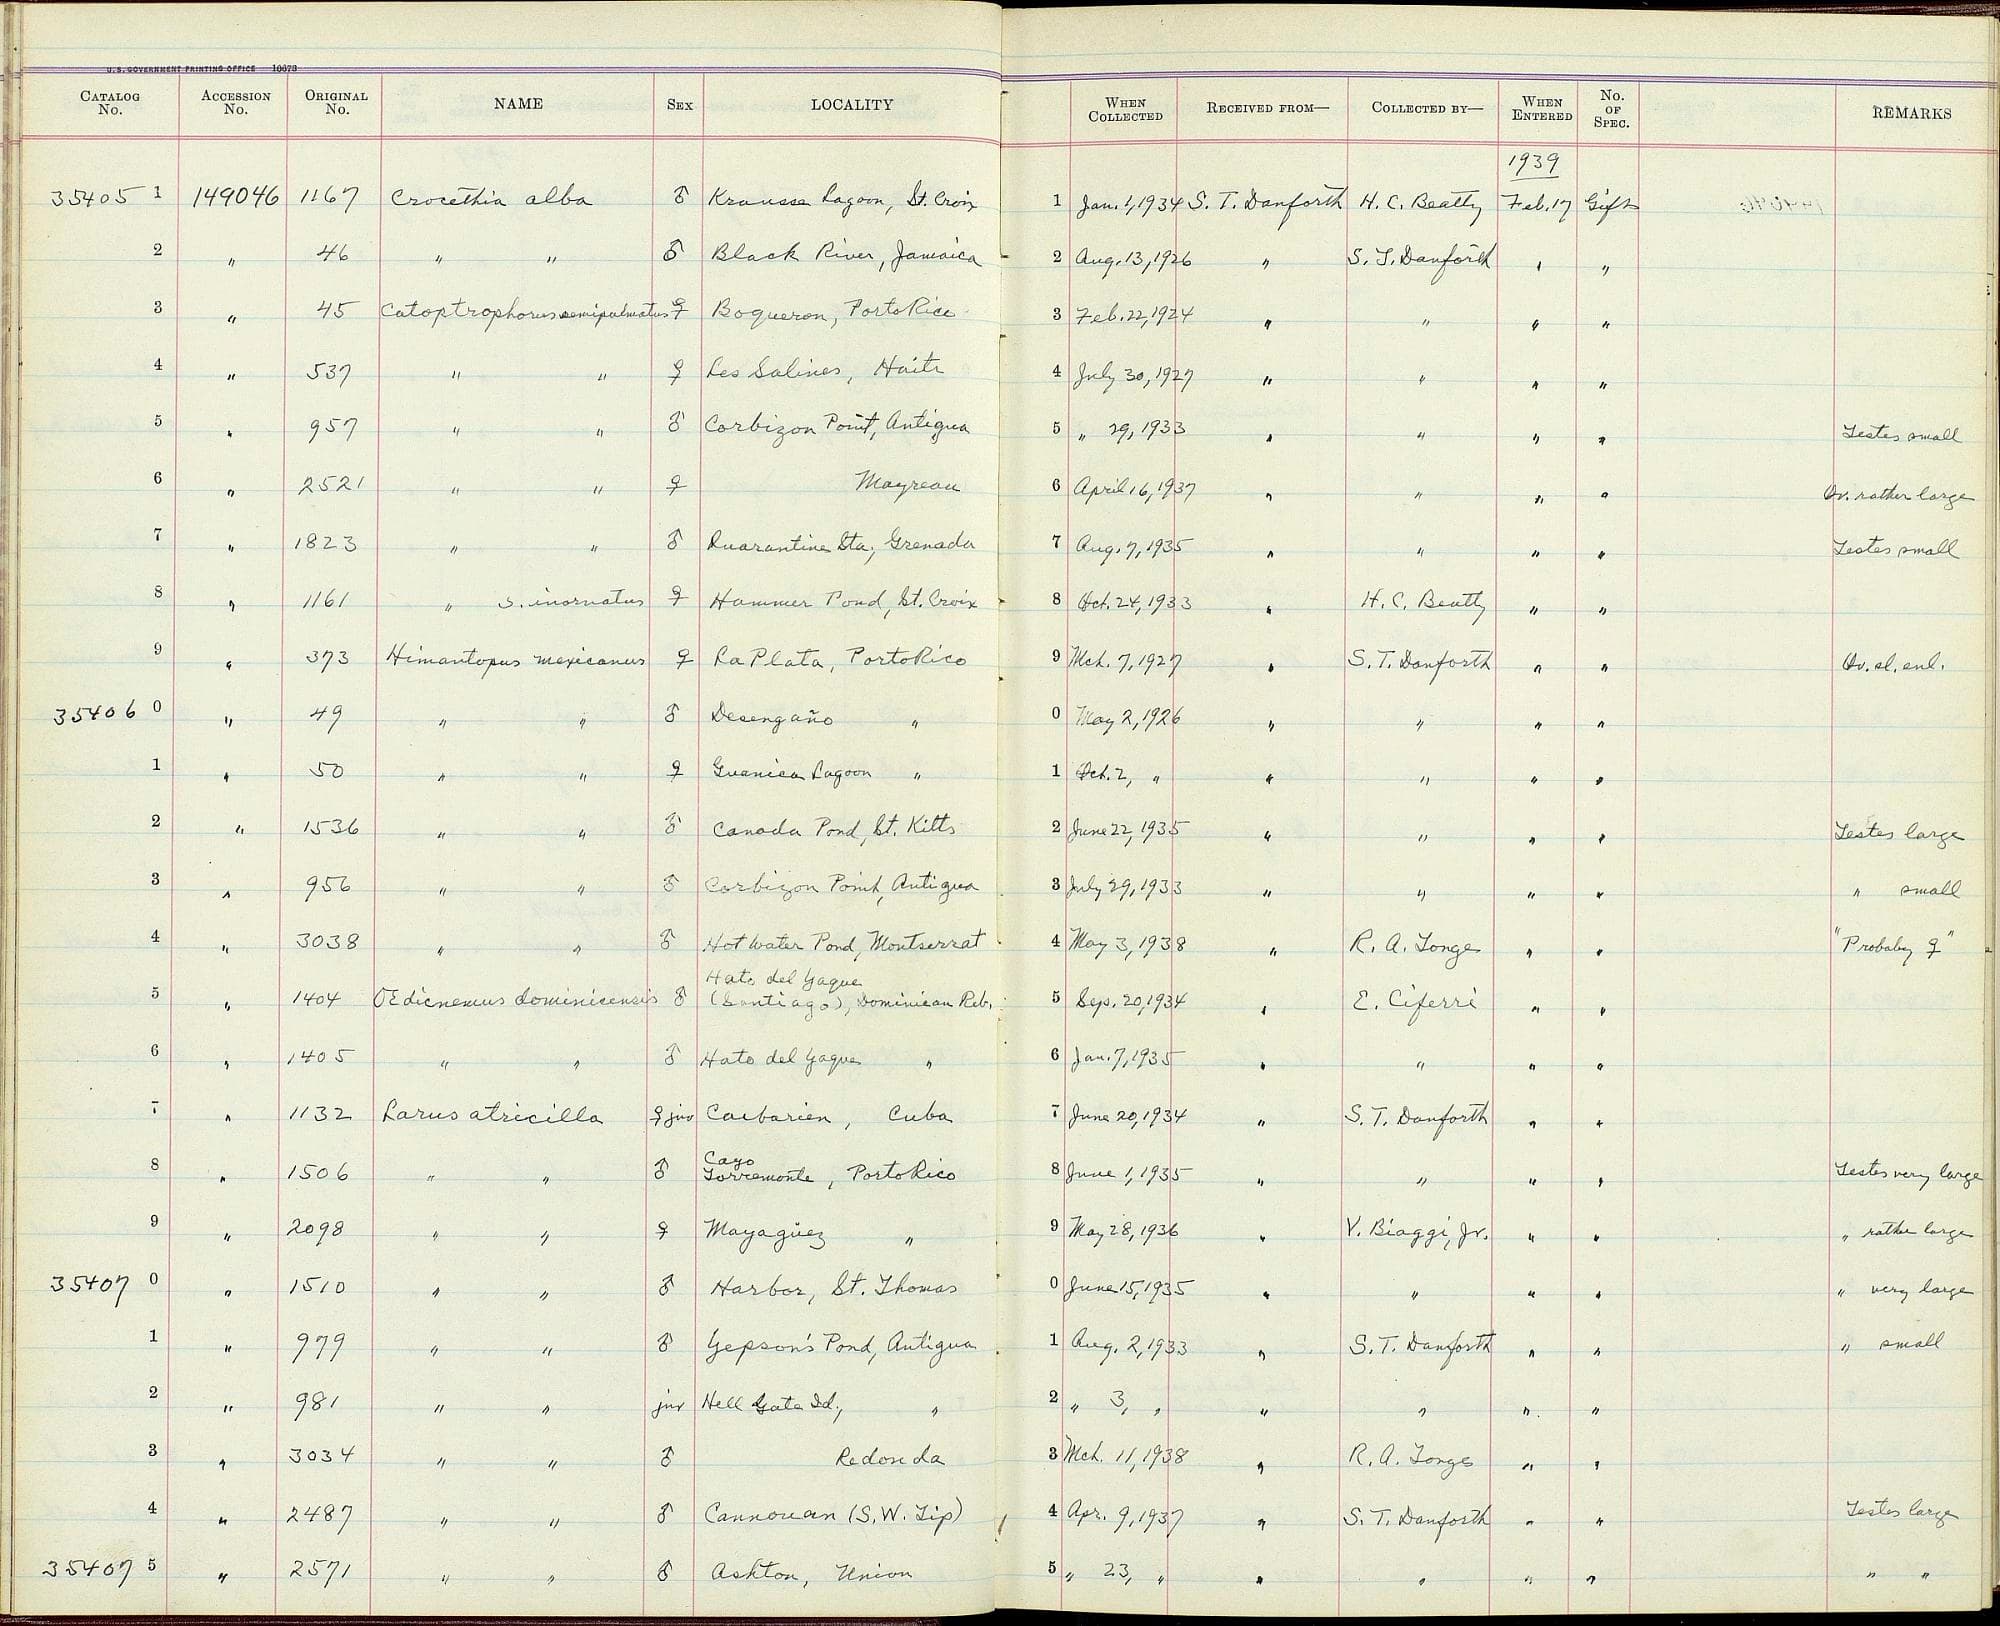 U.S. GOVERNMENT PRINTING OFFICE 10673
CATALOG No. ACCESSION No. ORIGINAL No. NAME SEX LOCALITY WHEN COLLECTED RECEIVED FROM— COLLECTED BY— WHEN ENTERED No. OF SPEC. REMARKS
1939
35405 1 149046 1167 Crocethia alba ♂ Krausse Lagoon, St. Croix 1 Jan. 1, 1934 S. T. Danforth H. C. Beatty Feb. 17 Gift
2 " 46 " " ♂ Black River, Jamaica 2 Aug. 13, 1926 " S. T. Danforth " "
3 " 45 Catoptrophorus semipalmatus ♀ Boqueron, Porto Rico 3 Feb. 22, 1924 " " " "
4 " 537 " " ♀ Les Salines, Haiti 4 July 30, 1927 " " " "
5 " 957 " " ♂ Corbizon Point, Antigua 5 " 29, 1933 " " " " Testes small
6 " 2521 " " ♀ Mayreau 6 April 16, 1937 " " " " Ov. rather large
7 " 1823 " " ♂ Quarantine Sta., Grenada 7 Aug. 7, 1935 " " " " Testes small
8 " 1161 " s. inornatus ♀ Hammer Pond, St. Croix 8 Oct. 24, 1933 " H. C. Beatty " "
9 " 373 Himantopus mexicanus ♀ La Plata, Porto Rico 9 Mch. 7, 1927 " S. T. Danforth " " Ov. sl. enl.
35406 0 " 49 " " ♂ Desengaño " 0 May 2, 1926 " " " "
1 " 50 " " ♀ Guanica Lagoon " 1 Oct. 2, " " " " "
2 " 1536 " " ♂ Canada Pond, St. Kitts 2 June 22, 1935 " " " " Testes large
3 " 956 " " ♂ Corbizon Point, Antigua 3 July 29, 1933 " " " " " small
4 " 3038 " " ♂ Hot Water Pond, Montserrat 4 May 3, 1938 " R. A. Tonge " " "Probably ♀"
Hato del Yaque
5 " 1404 Œdicnemus dominicensis ♂ (Santiago), Dominican Reb. 5 Sep. 20, 1934 " E. Ciferri " "
6 " 1405 " " ♂ Hato del Yaque " 6 Jan. 7, 1935 " " " "
7 " 1132 Larus atricilla ♀ juv Caibarien, Cuba 7 June 20, 1934 " S. T. Danforth " "
Cayo
8 " 1506 " " ♂ Torremonte, Porto Rico 8 June 1, 1935 " " " " Testes very large
9 " 2098 " " ♀ Mayagüez " 9 May 28, 1936 " V. Biaggi, Jr. " " " rather large
35407 0 " 1510 " " ♂ Harbor, St. Thomas 0 June 15, 1935 " " " " " very large
1 " 979 " " ♂ Yepson's Pond, Antigua 1 Aug. 2, 1933 " S. T. Danforth " " " small
2 " 981 " " juv Hell Gate Id., " 2 " 3, " " " " "
3 " 3034 " " ♂ Redonda 3 Mch. 11, 1938 " R. A. Tonge " "
4 " 2487 " " ♂ Cannouan (S.W. Tip) 4 Apr. 9, 1937 " S. T. Danforth " " Testes large
35407 5 " 2571 " " ♂ Ashton, Union 5 " 23, " " " " " " "